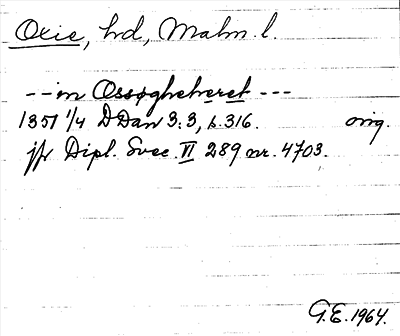 Oxie, hd, Malm. l.
--in Ossøgheheret ---
1351 1/4 DDan 3:3, s. 316. orig.
jfr Dipl. Svec. VI 289 nr. 4703.
G.E. 1964.